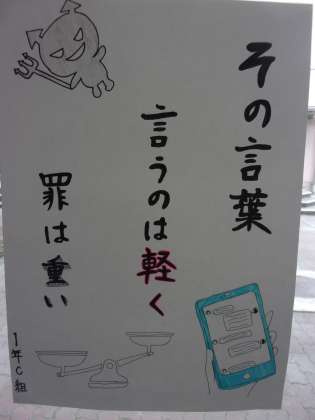 その言葉
言うのは軽く
罪は重い
1年C組